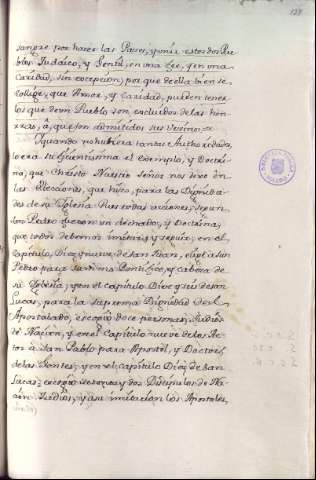 129
sangre por hacer las Paces, y unir estos dos Pue
blos Judaico, y Gentil, en una Ley, y en una
Caridad, sin excepcion, por que de ella bien se
collige, que Amor, y Caridad, pueden tener
los que de un Pueblo son excluidos de las hon
rras, â, que son admitidos sus Vecinos
Y quando no hubiera tantas Authoridades,
era suficientissima el exemplo, y Doctri
na, que Christo Nuestro Señor nos dexo en
las Elecciones, que hizo, para las Dignida
des de su Iglesia Pues todas acciones, segun
San Pedro fueron un dechado, y Doctrina,
que todos debemos imitar, y seguir, en el
Capitulo, Diez y nueve, de San Juan, elixio a San
Pedro para Summo Pontifice, y Cabeza de
su Iglesia, y en el Capitulo Dies y seis de San
Lucas, para la suprema Dignidad del
Apostolado, escogio doce personas, Judios
de Nacion, y en el Capitulo nueve de los Ac
tos â San Pablo para Apostol, y Doctor,
de las Gentes, y en el, capitulo Diez, de San
Lucas, escogio setenta y dos Discipulos de Na
cion, Judios, y a su imitacion los Apostoles,